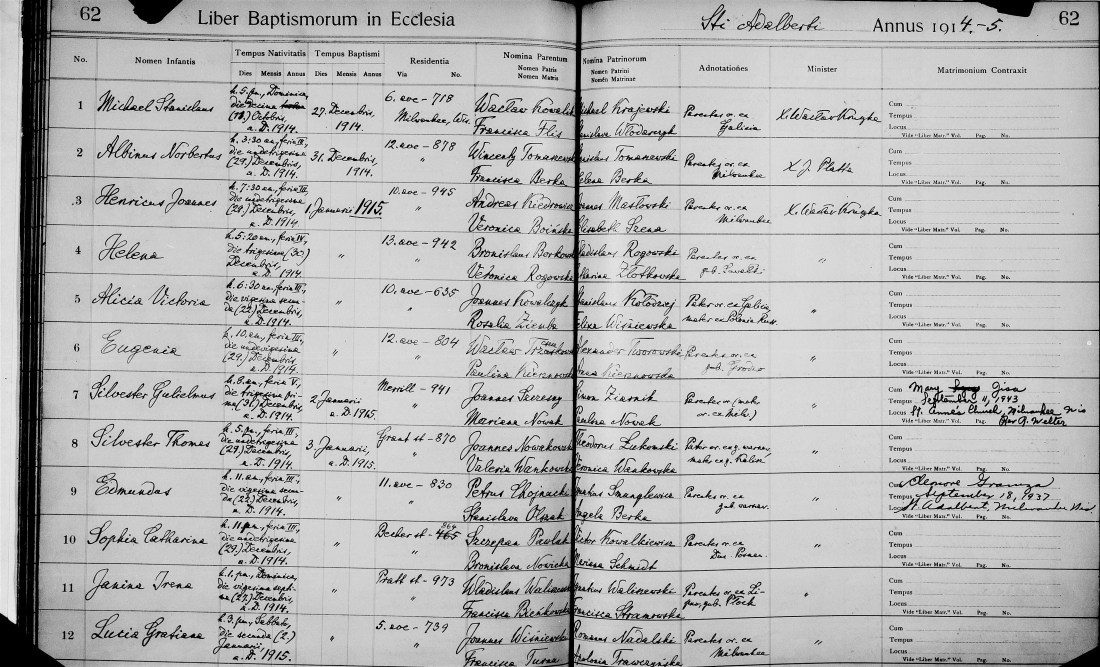 62 Liber Baptismorum in Ecclesia Sti Adalberti Annus 1914.-5. 62
No. Nomen Infantis Tempus Nativitatis Tempus Baptismi Residentia Nomina Parentum Nomina Patrinorum Adnotationes Minister Matrimonium Contraxit
Dies Mensis Annus Dies Mensis Annus Via No. Nomen Patris Nomen Patrini
Nomen Matris Nomen Matrinae
1 Michael Stanislaus
h. 5. pm, Dominica,
Octobris,
a. D. 1914.
27. Decembris,
1914.
6. ave - 718
Milwaukee, Wis.
Wacław Kowalsk
Francisca Flis
Michael Krajewski
Parentes or. ex
Galicia
X. Wacław Kruszka
Cum
Tempus
Locus
Vide "Liber Matr." Vol. Pag. No.
2 Albinus Norbertus
h. 3:30 am, feria III,
die undetrigesima
(29.) Decembris,
a. D. 1914.
31. Decembris,
1914.
12. ave - 878
"
Wincenty Tomaszewsk
Francisca Berka
Tomaszewski
Helena Berka
Parentes or. ex
Milwaukee
X J. Platta
Cum
Tempus
Locus
Vide "Liber Matr." Vol. Pag. No.
3 Henricus Joannes
h. 7:30 am, feria III,
die undetrigesima
(29.) Decembris,
a. D. 1914.
1. Januarii 1915.
10. ave - 945
"
Andreas
Veronica Boińska
Joannes Masłowski
Elisabeth
Parentes or. ex
Milwaukee
X. Wacław Kruszka
Cum
Tempus
Locus
Vide "Liber Matr." Vol. Pag. No.
4 Helena
h. 5:20 am, feria IV,
die trigesima (30)
Decembris,
a. D. 1914.
"
13. ave - 942
"
Bronislaus Borkow
Veronica Rogowska
Ladislaus Rogowski
Marina Złotkowska
Parentes or. ex
gub. Suwalki
"
Cum
Tempus
Locus
Vide "Liber Matr." Vol. Pag. No.
5 Alicia Victoria
h. 6:30 am, feria III,
die vigesima secun
da (22.) Decembris,
a. D. 1914.
"
10. ave - 635
"
Joannes Kowalczyk
Rosalia Zienta
Stanislaus Kołodziej
Felixa Wiśniewska
Pater or. ex Galicia
mater ex Polonia Russ.
"
Cum
Tempus
Locus
Vide "Liber Matr." Vol. Pag. No.
6 Eugenia
h. 10. am, feria III,
die undevigesima
(29.) Decembris,
a. D. 1914.
"
12. ave - 804
"
Wacław
Paulina Kiersnowsk
Alexander Tworowski
Anna Kiersnowska
Parentes or. ex
gub. Grodno
"
Cum
Tempus
Locus
Vide "Liber Matr." Vol. Pag. No.
7 Silvester Gulielmus
h. 8. am, feria V,
die trigesima pri
ma (31.) Decembris,
a. D. 1914.
2. Januarii
a. D. 1915.
Merrill - 941
"
Joannes
Mariana Nowak
Simon Ziarnik
Paulina Nowak
Parentes or. (mater
or. ex Milw.)
"
Cum Mary Gisa
Tempus September 11, 1943
Locus St. Anne's Church, Milwaukee Wis
Rev. A. Walter
Vide "Liber Matr." Vol. Pag. No.
8 Silvester Thomas
h. 5. pm, feria III,
die undetrigesima
(29.) Decembris,
a. D. 1914.
3. Januarii,
a. D. 1915.
Grant st - 870
"
Joannes Nowakowsk
Valeria Wankowska
Theodorus Łukomski
Veronica Wankowska
Pater or. ex g. warsav.
mater ex g. Kalisz
"
Cum
Tempus
Locus
Vide "Liber Matr." Vol. Pag. No.
9 Edmundus
h. 11. am, feria III,
die vigesima secun
da (22.) Decembris,
a. D. 1914.
"
11. ave - 830
"
Petrus Chojnacki
Stanislava Olszak
Ignatius
Angela Berka
Parentes or. ex
gub. warsav.
"
Cum Eleanore
Tempus September 18, 1937
Locus St Adalbert, Milwaukee Wis.
Vide "Liber Matr." Vol. Pag. No.
10 Sophia Catharina
h. 11. pm, feria III,
die undetrigesima
(29.) Decembris,
a. D. 1914.
"
Becher st - 465 864
"
Szczepan Pawlak
Bronislava Nowicka
Victor Kowalkiewicz
Marissa Schmidt
Parentes or. ex
Duc. Posnan.
"
Cum
Tempus
Locus
Vide "Liber Matr." Vol. Pag. No.
11 Janina Irena
h. 1. pm, Dominica,
die vigesima septi
ma (27.) Decembris,
a. D. 1914.
"
Pratt st - 973
"
Wladislaus
Francisca Bieńkowsk
Ignatius Waliszewski
Francisca Stramowska
Parentes or. ex
gub. Płock
"
Cum
Tempus
Locus
Vide "Liber Matr." Vol. Pag. No.
12 Lucia Gratiana
h. 3. pm, Sabbato,
die secunda (2.)
Januarii,
a. D. 1915.
"
5. ave - 739
"
Joannes Wiśniewsk
Francisca Turna
Romanus Nadolski
Apolonia Trawczyńska
Parentes or. ex
Milwaukee
"
Cum
Tempus
Locus
Vide "Liber Matr." Vol. Pag. No.